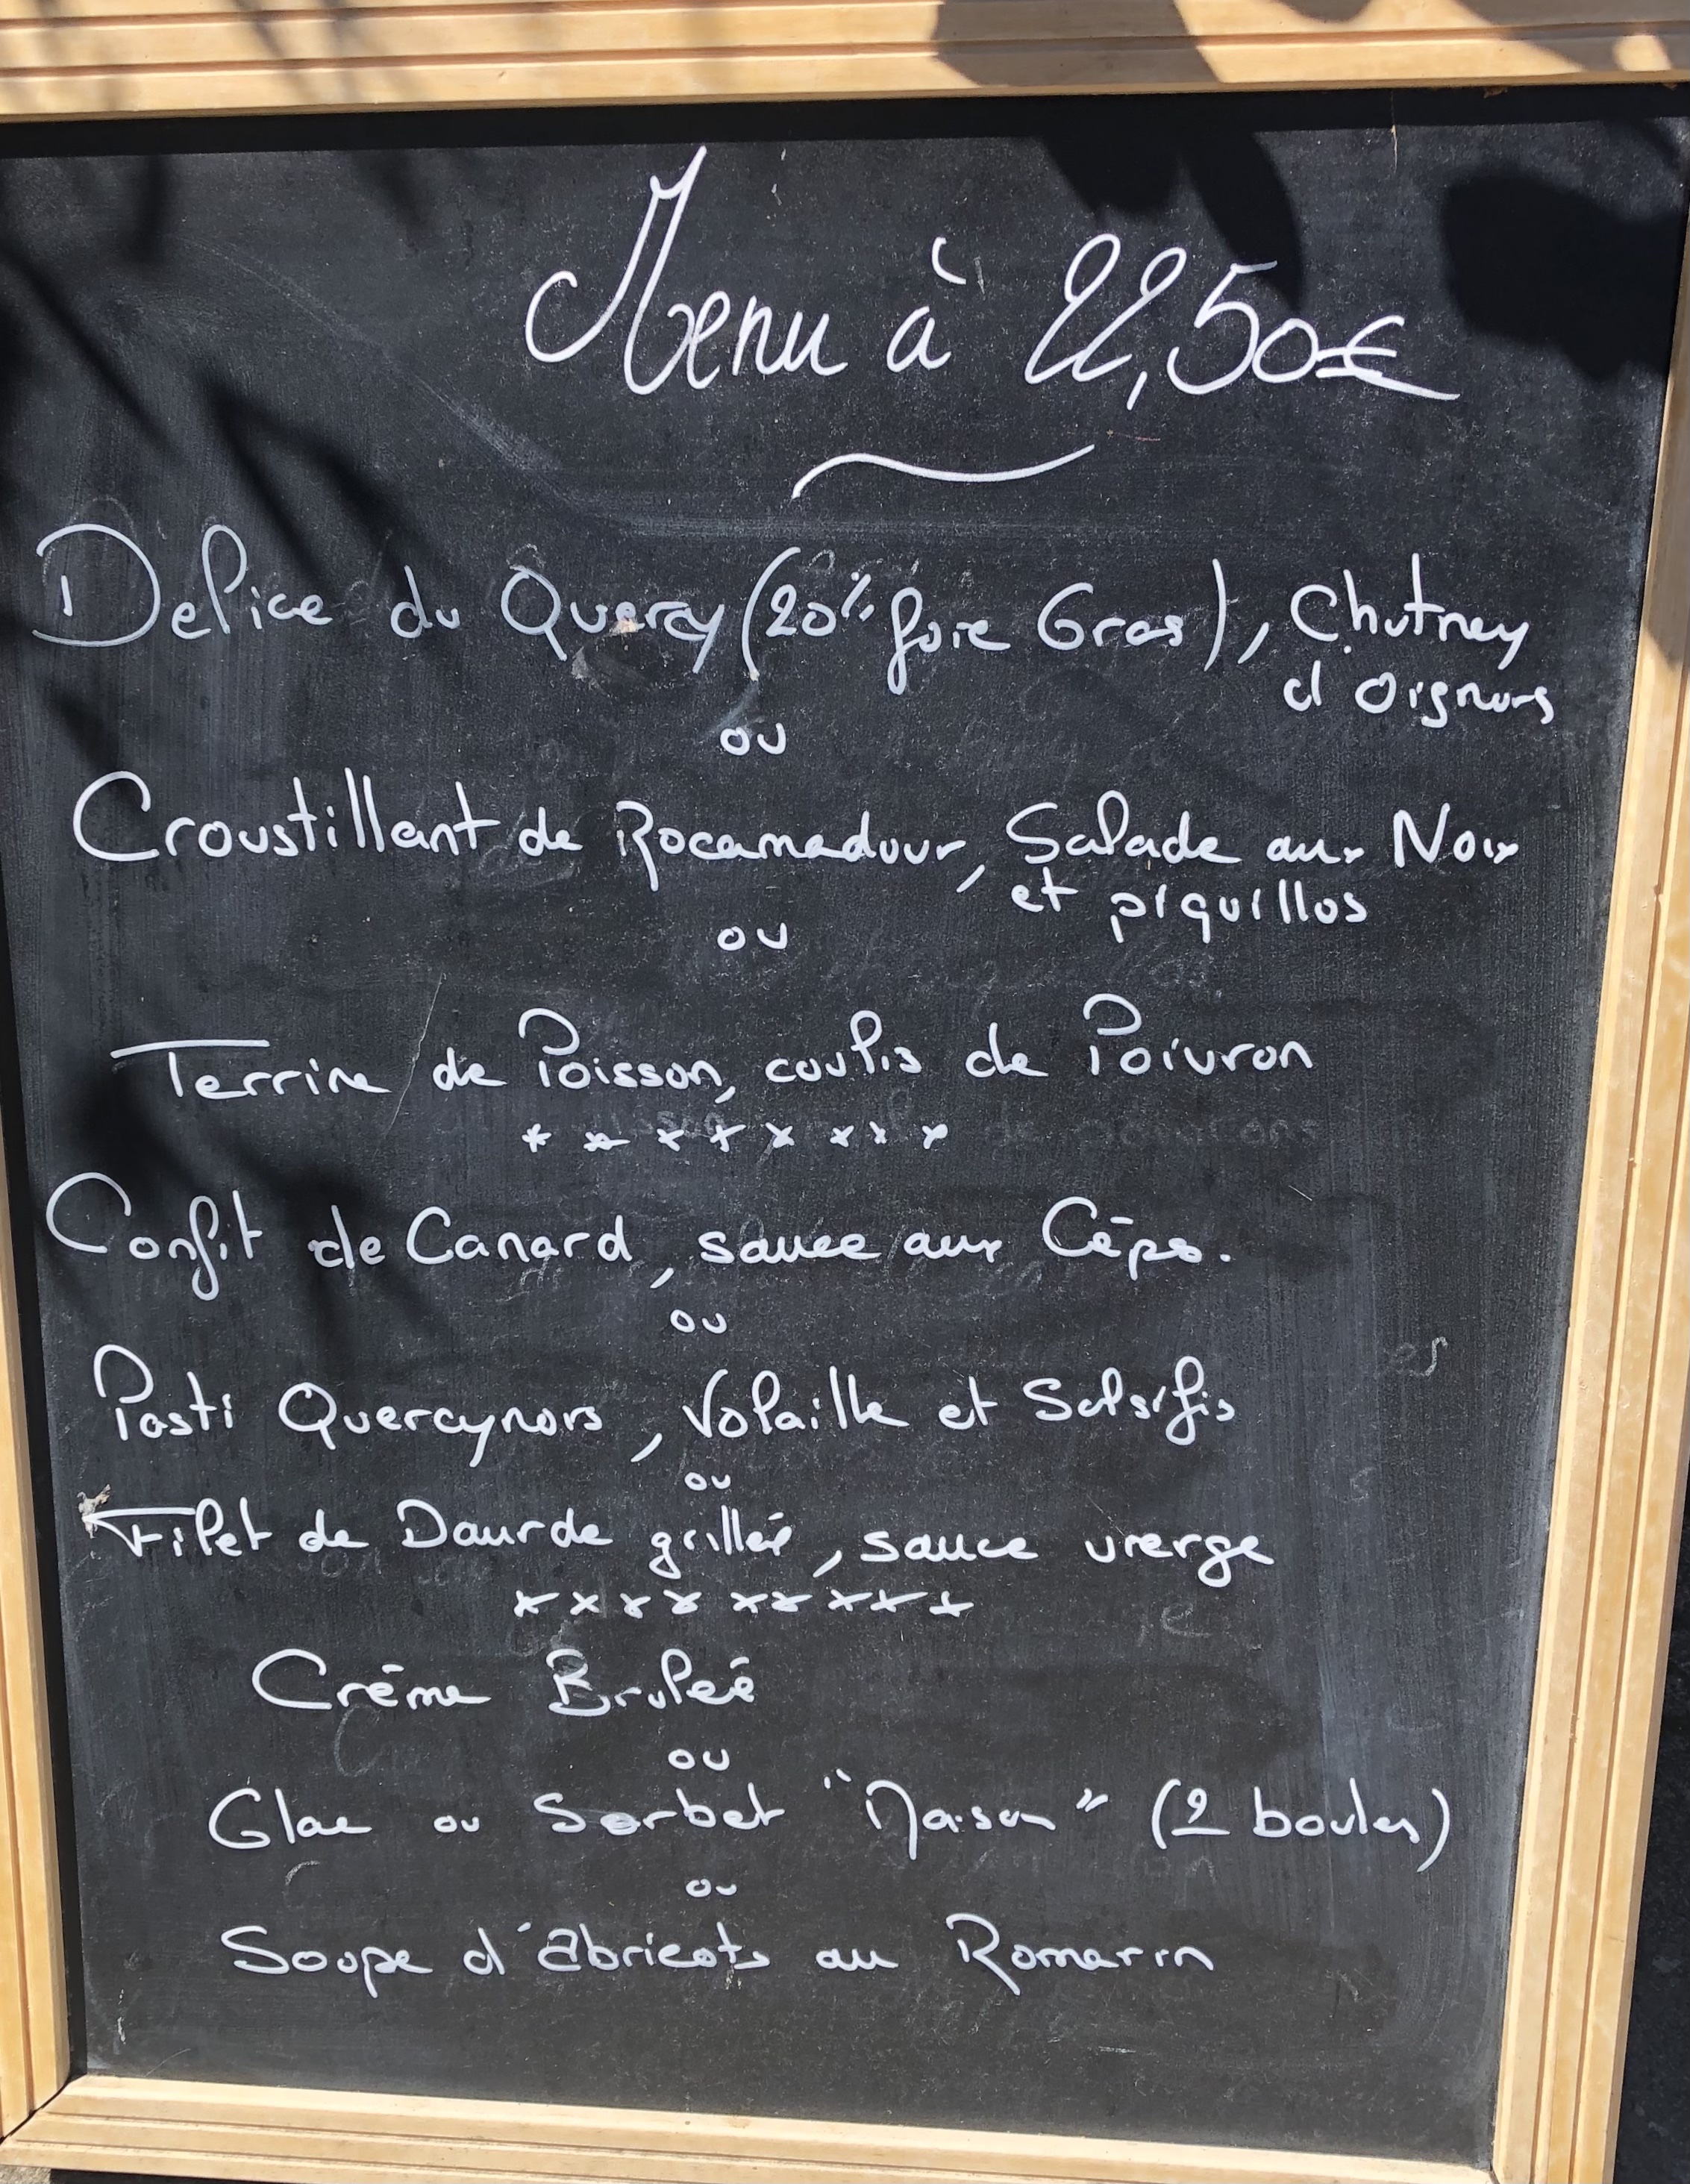 Menu à 22,50€
Delice du Quercy (20% foie Gras), Chutney
d Oignons
ou
Croustillant de Rocamadour, Salade aux Noix
et piquillos
ou
Terrine de Poisson, coulis de Poivron
* * * * * * * *
Confit de Canard, sauce aux Cèps.
ou
Pasti Quercynois, Volaille et Salsifis
ou
Filet de Daurde grillée, sauce vierge
* * * * * * * * *
Crême Brulée
ou
Glace ou Sorbet "Maison" (2 boules)
ou
Soupe d'abricots au Romarin